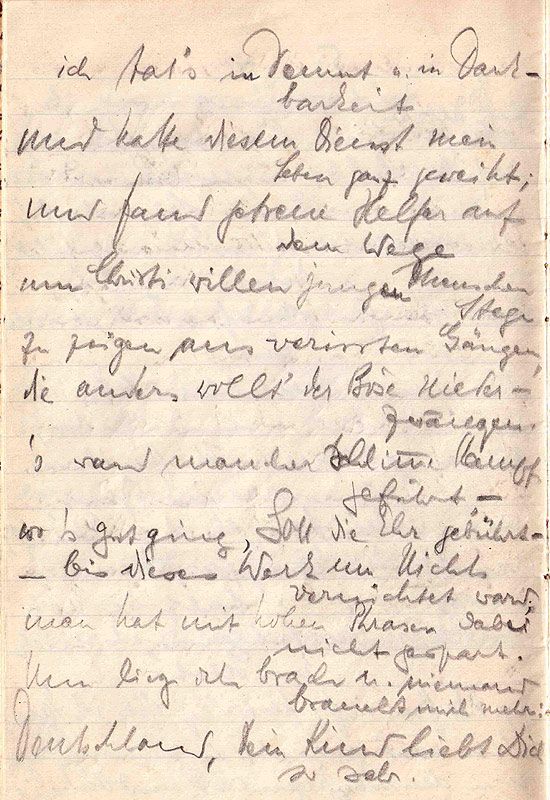 ich tat's in Demut u. in Dank-
barkeit
und hatte diesem Dienst mein
Leben ganz geweiht;
und fand getreue Helfer auf
dem Wege
um Christi willen jungen Menschen
Stege
zu zeigen aus verirrten Gängen,
die anders wollt' der Böse nieder-
zwängen.
's ward mancher schlimme Kampf
geführt –
wo's gut ging, Gott die Ehr gebührt –
– bis dieses Werk im Nichts
vernichtet ward,
man hat mit hohen Phrasen dabei
nicht gespart.
Nun lieg ich brach u. niemand
braucht mich mehr:
Deutschland, Dein Kind liebt Dich
so sehr.